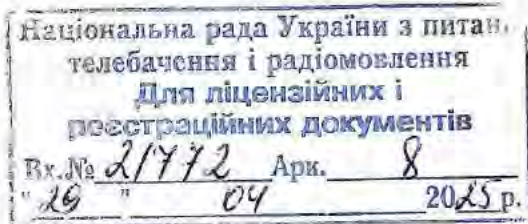 Національна рада України з питань
телебачення і радіомовлення
Для ліцензійних і
реєстраційних документів
Вх.№ 21772 Арк. 8
"29" 04 2025 р.